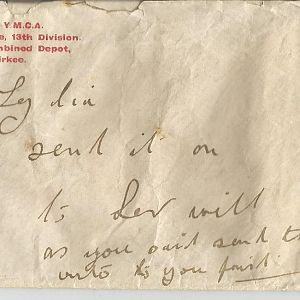 Y.M.C.A.
e, 13th Division.
mbined Depot,
irkee.
Lydia
send it on
to Lev will
as you said send t
unto you first